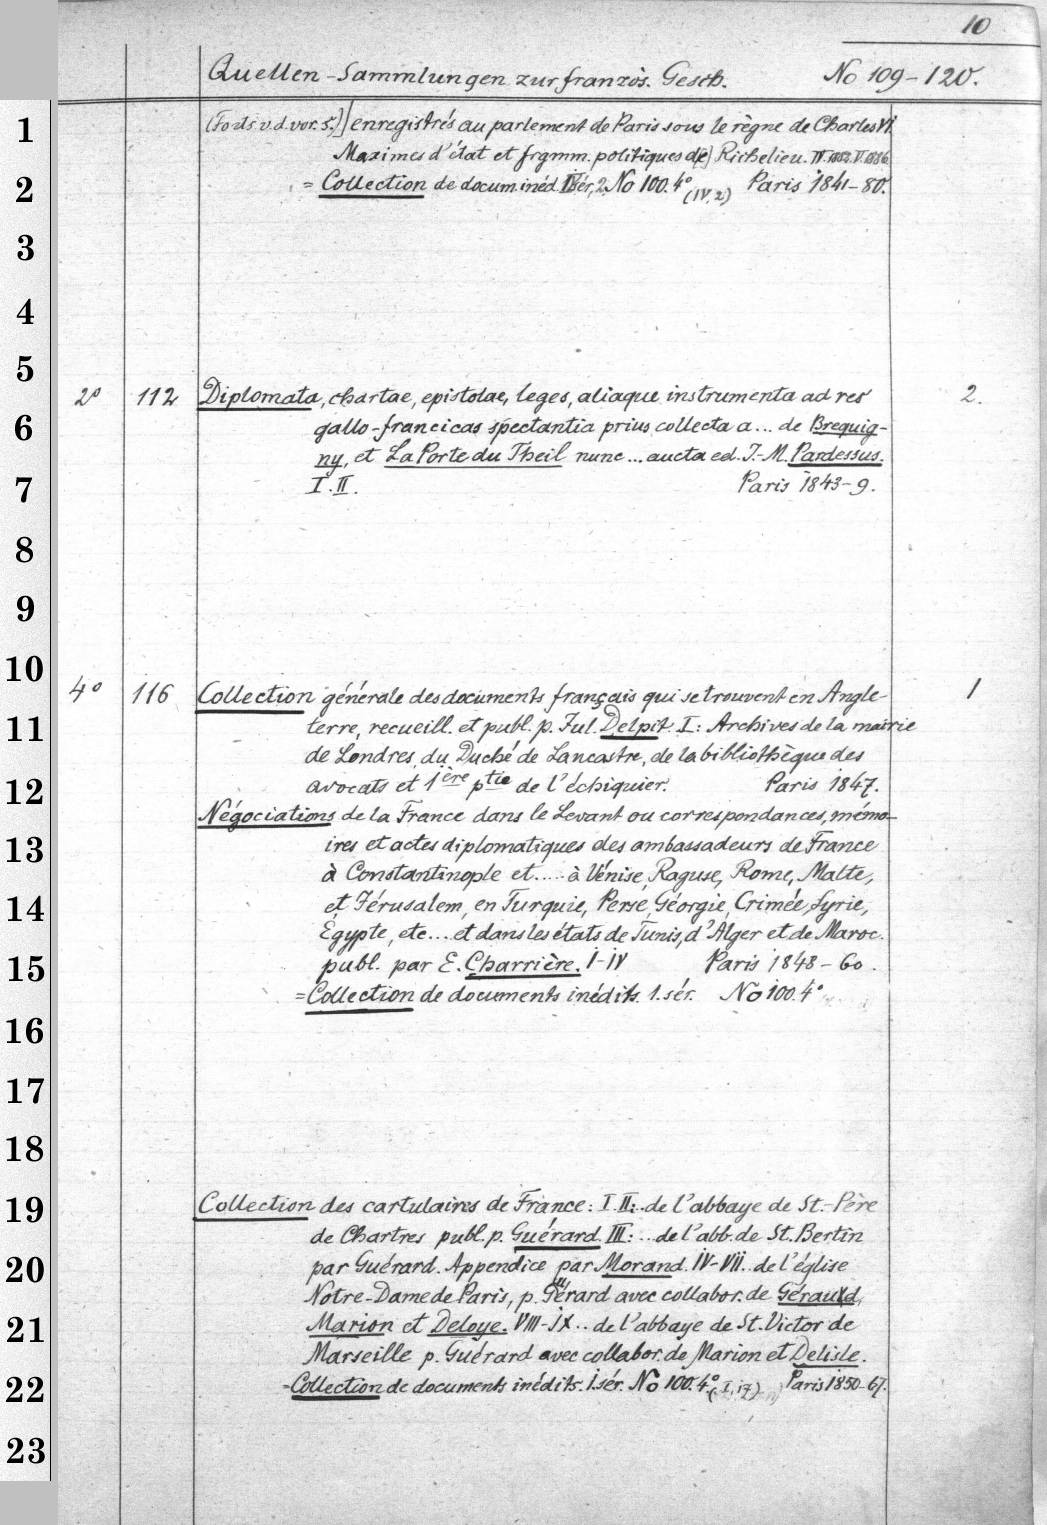 10
Quellen-Sammlungen zur französ. Gesch. No 109-120.
1
(Forts. v. d. vor. S.)] enregistrés au parlement de Paris sous le règne de Charles VI.
Maximes d'état et frgmm. politiques d(e) Richelieu. IV. 1852. V. 1886
2
= Collection de docum. inéd. II Sér, 2. No 100. 4° (IV, 2) Paris 1841-80.
3
4
5
2° 112 Diplomata, chartae, epistolae, leges, aliaque instrumenta ad res 2.
6
gallo-francicas spectantia prius collecta a... de Brequig-
ny, et La Porte du Theil nunc... aucta ed. J.-M. Pardessus.
7
I. II. Paris 1843-9.
8
9
10
4° 116 Collection générale des documents français qui se trouvent en Angle- 1
11
terre, recueill. et publ. p. Jul. Delpit. I: Archives de la mairie
de Londres, du Duché de Lancastre, de la bibliothèque des
12
avocats et 1ère ptie de l'échiquier. Paris 1847.
Négociations de la France dans le Levant ou correspondances, mémo-
13
ires et actes diplomatiques des ambassadeurs de France
à Constantinople et..... à Vénise, Raguse, Rome, Malte,
14
et Jérusalem, en Turquie, Perse, Géorgie, Crimée, Syrie,
Egypte, etc... et dans les états de Tunis, d'Alger et de Maroc.
15
publ. par E. Charrière. I-IV Paris 1848-60.
= Collection de documents inédits. 1. sér. No 100. 4°
16
17
18
19
Collection des cartulaires de France: I. II: .. de l'abbaye de St.-Père
de Chartres publ. p. Guérard. III: ... de l'abb. de St. Bertin
20
par Guérard. Appendice par Morand. IV-VII .. de l'église
Notre-Dame de Paris, p. Guérard avec collabor. de Géraud,
21
Marion et Deloye. VIII-IX .. de l'abbaye de St. Victor de
Marseille p. Guérard avec collabor. de Marion et Delisle.
22
= Collection de documents inédits. 1. sér. No 100. 4° (I, 17) Paris 1850-67.
23